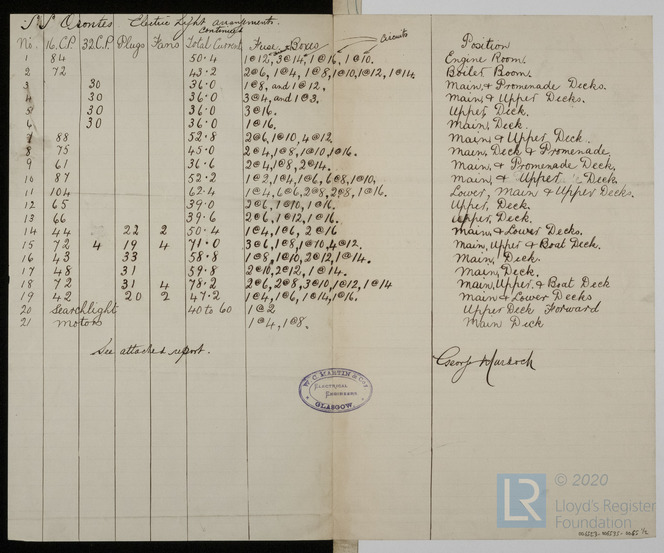 S/S Orontes Electric Light arrangements.
continued
No. 16.C.P. 32C.P. Plugs Fans Total Current Fuse Boxes Circuits Position
1 84 50.4 1@12, 3@14, 1@16, 1@10. Engine Room.
2 72 43.2 2@6, 1@4, 1@8, 1@10, 1@12, 1@14. Boiler Room.
3 30 36.0 1@8, and 1@12. Main & Promenade Decks.
4 30 36.0 3@4, and 1@3. Main & Upper Decks.
5 30 36.0 3@16. Upper Deck.
6 30 36.0 1@16. Main Deck.
7 88 52.8 2@6, 1@10, 4@12. Main & Upper Deck.
8 75 45.0 2@4, 1@8, 1@10, 1@16. Main, Deck & Promenade.
9 61 36.6 2@4, 1@8, 2@14. Main, & Promenade Deck.
10 87 52.2 1@2, 1@4, 1@6, 6@8, 1@10. Main, & Upper Deck.
11 104 62.4 1@4, 6@6, 2@8, 2@8, 1@16. Lower, Main & Upper Decks.
12 65 39.0 2@6, 1@10, 1@16. Upper, Deck.
13 66 39.6 2@6, 1@12, 1@16. Upper, Deck.
14 44 22 2 50.4 1@4, 1@6, 2@16 Main & Lower Decks.
15 72 4 19 4 71.0 3@6, 1@8, 1@10, 4@12. Main, Upper & Boat Deck.
16 43 33 58.8 1@8, 1@10, 2@12, 1@14. Main, Deck.
17 48 31 59.8 2@10, 2@12, 1@14. Main, Deck.
18 72 31 4 78.2 2@6, 2@8, 3@10, 1@12, 1@14 Main, Upper, & Boat Deck
19 42 20 2 47.2 1@4, 1@6, 1@14, 1@16. Main & Lower Decks
20 Searchlight 40 to 60 1@2 Upper Deck Forward
21 Motors 1@4, 1@8. Main Deck
See attached report.
George Murdoch
W. C. MARTIN & Co.
ELECTRICAL
ENGINEERS
GLASGOW
LR © 2020
Lloyd's Register
Foundation